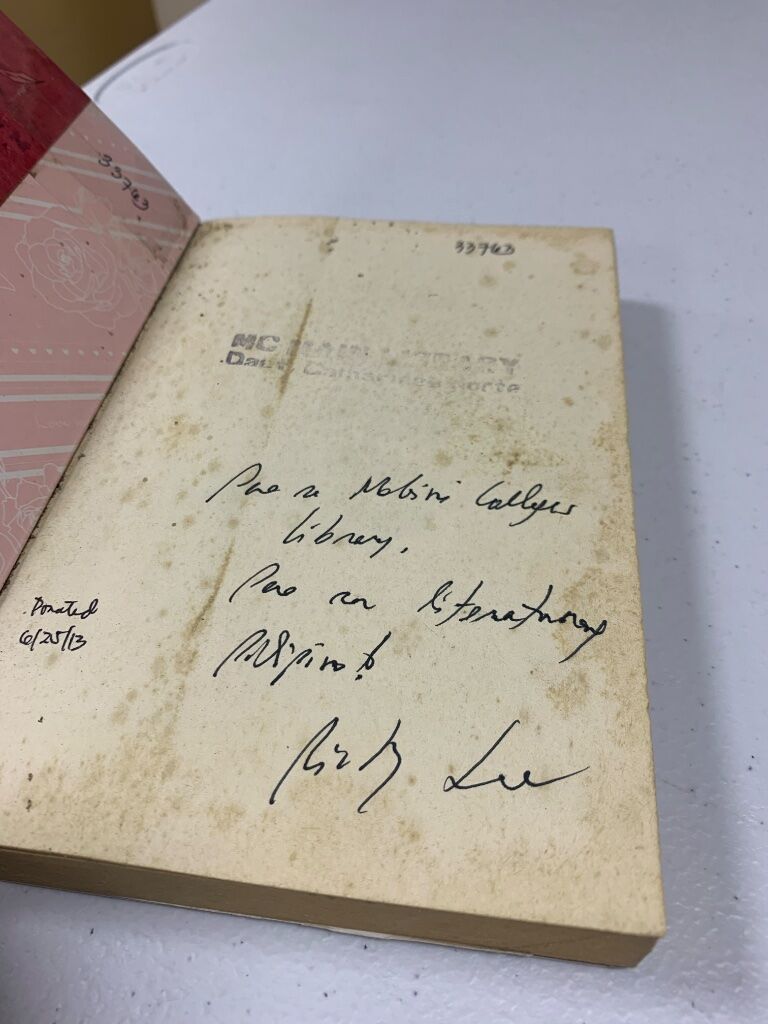 33763
33763
MC MAIN LIBRARY
Daet, Camarines Norte
Para sa Mabini Colleges
library.
Para sa literaturang
Pilipino!
Ricky Lee
Donated
6/25/13